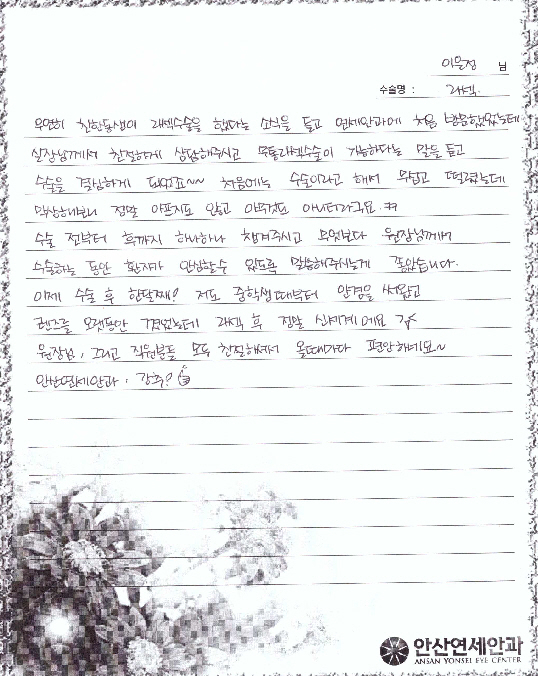 이은정 님
수술명 : 라섹.
우연히 친한동생이 라섹수술을 했다는 소식을 듣고 연세안과에 처음 방문했었는데
실장님께서 친절하게 상담해주시고 무통라섹수술이 가능하다는 말을 듣고
수술을 결심하게 되었죠~~ 처음에는 수술이라고 해서 무섭고 떨렸는데
막상해보니 정말 아프지도 않고 아무것도 아니더라구요.ㅋㅋ
수술 전부터 후까지 하나하나 챙겨주시고 무엇보다 원장님께서
수술하는 동안 환자가 안심할수 있도록 말씀해주시는게 좋았습니다.
이제 수술 후 한달째? 저도 중학생때부터 안경을 써왔고
렌즈를 오랫동안 꼈었는데 라섹 후 정말 신세계예요
원장님, 그리고 직원분들 모두 친절하셔서 올때마다 편안해요~
안산연세안과, 강추?
안산연세안과
ANSAN YONSEI EYE CENTER